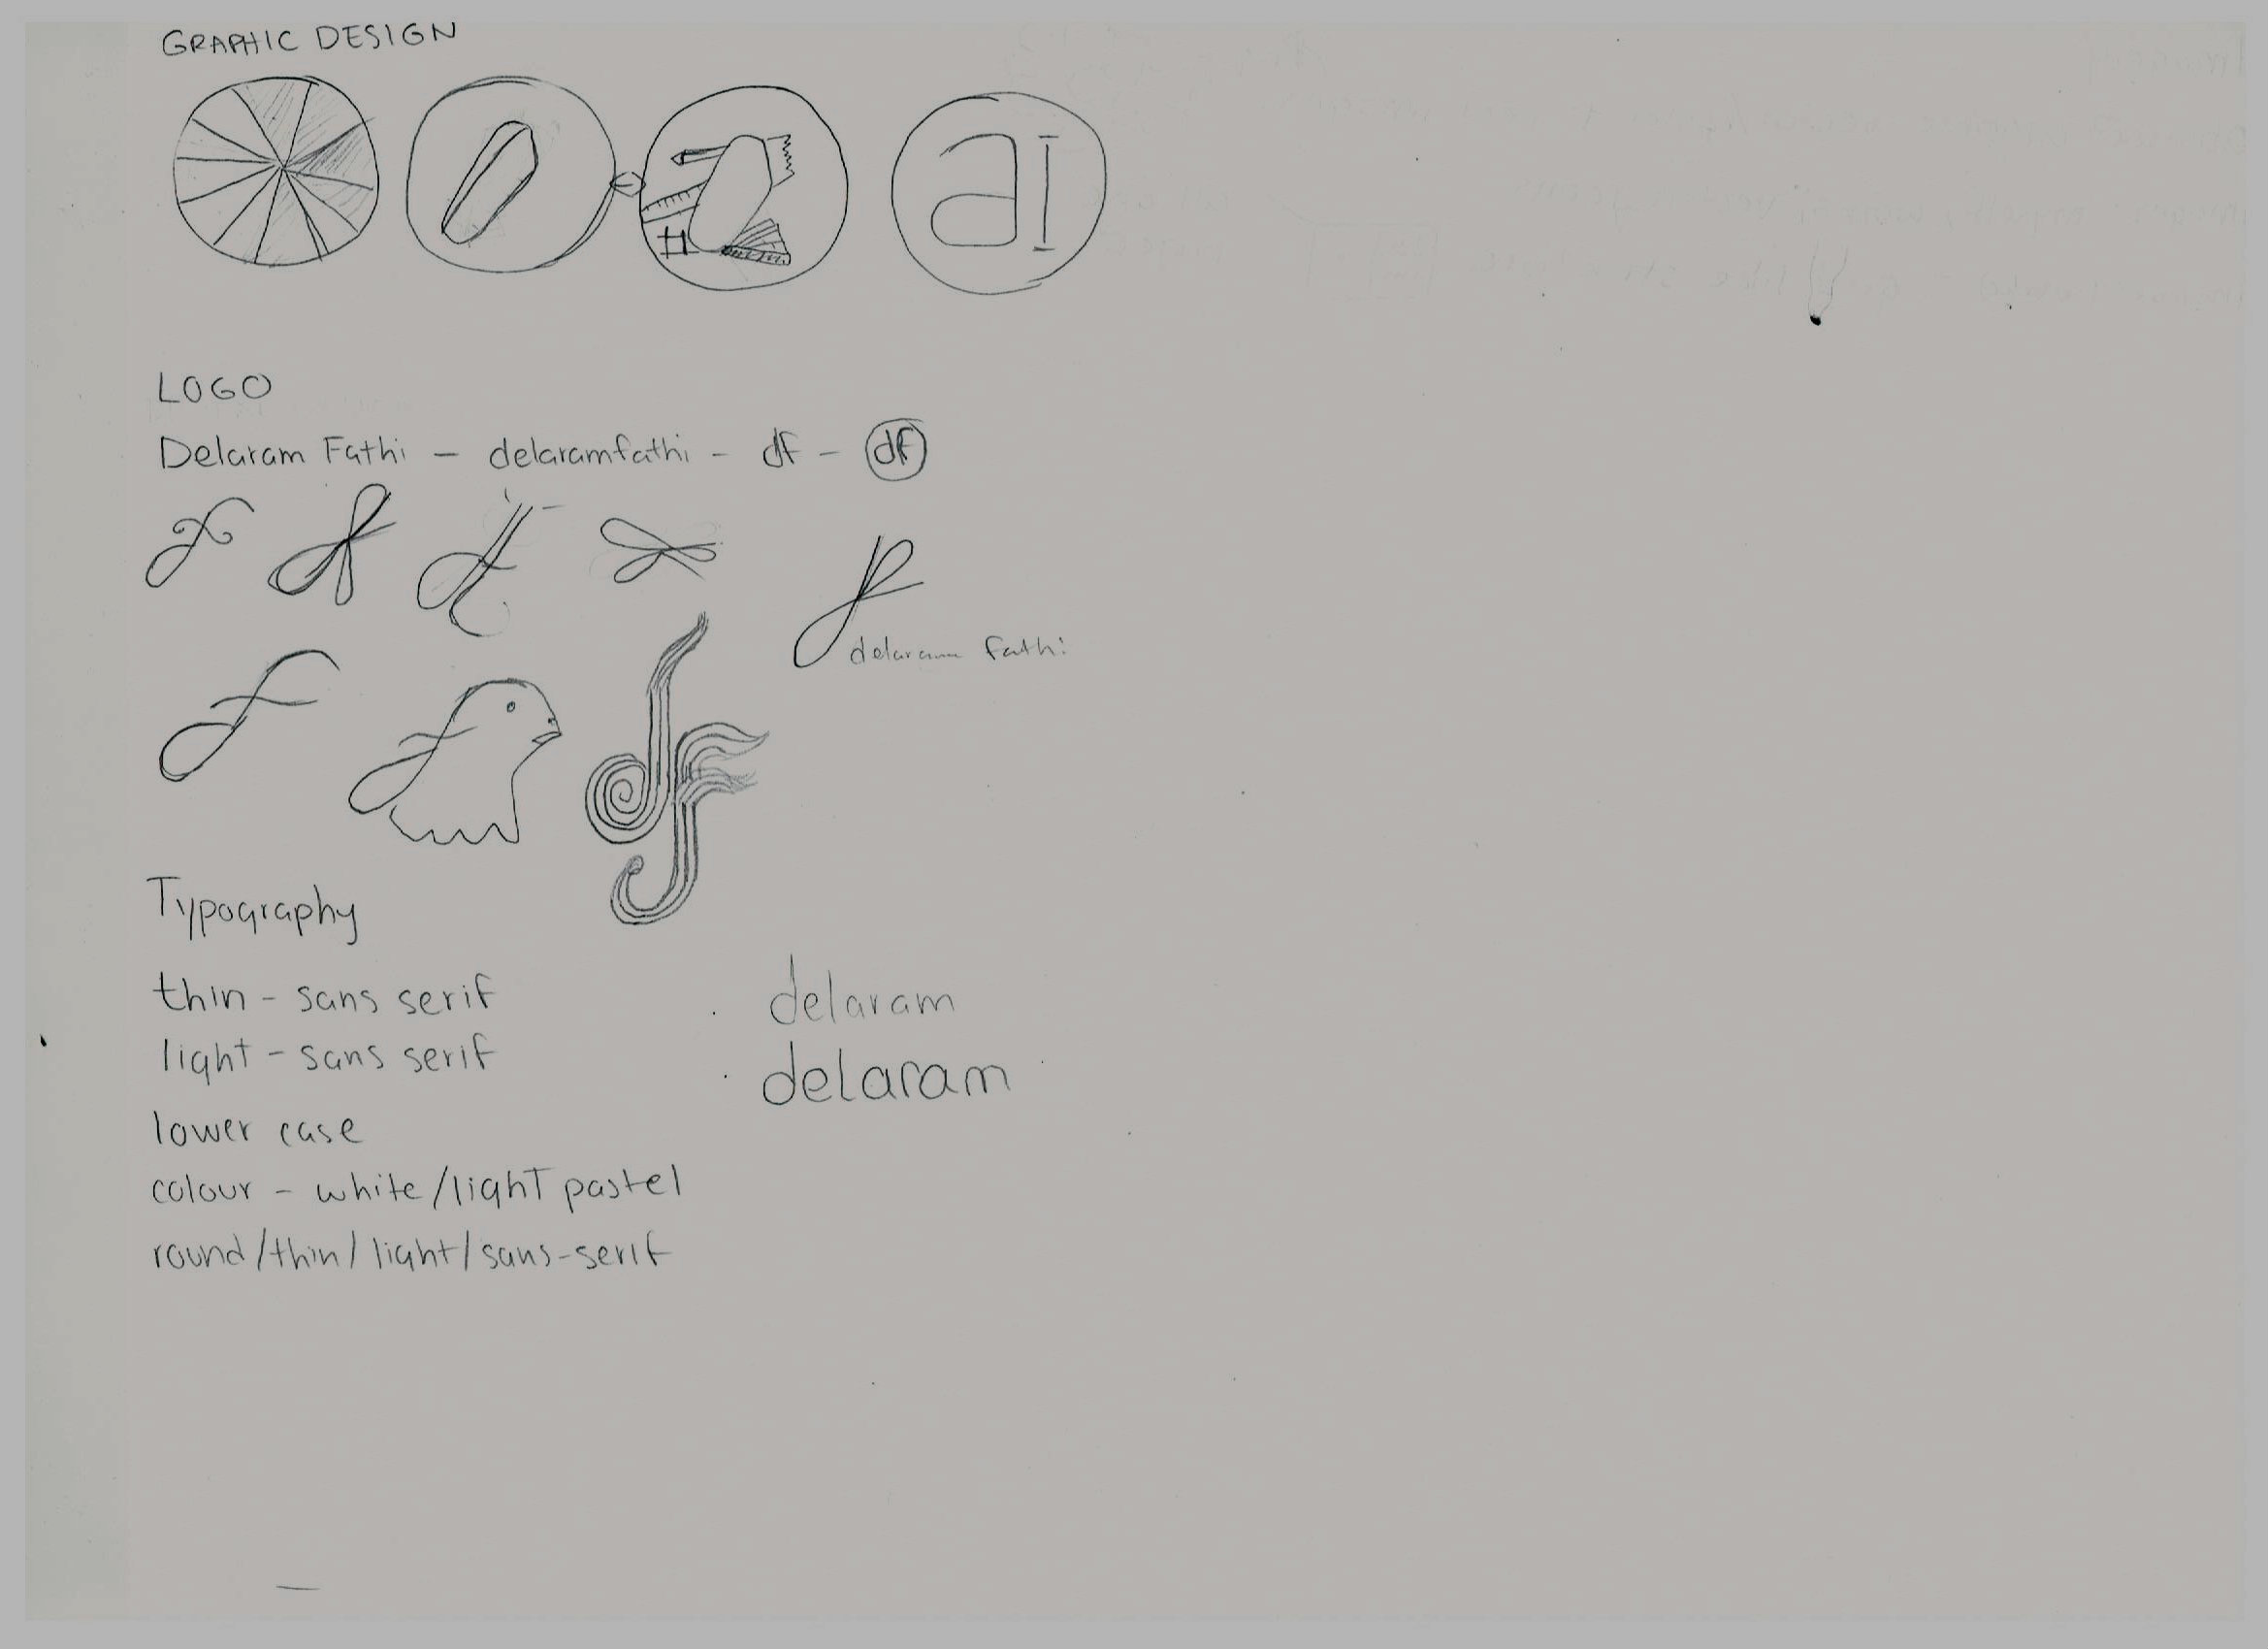 GRAPHIC DESIGN
a
LOGO
Delaram Fathi – delaramfathi – df – df
delaram fathi
df
Typography
thin – sans serif
delaram
light – sans serif
delaram
lower case
colour – white/light pastel
round/thin/light/sans-serif